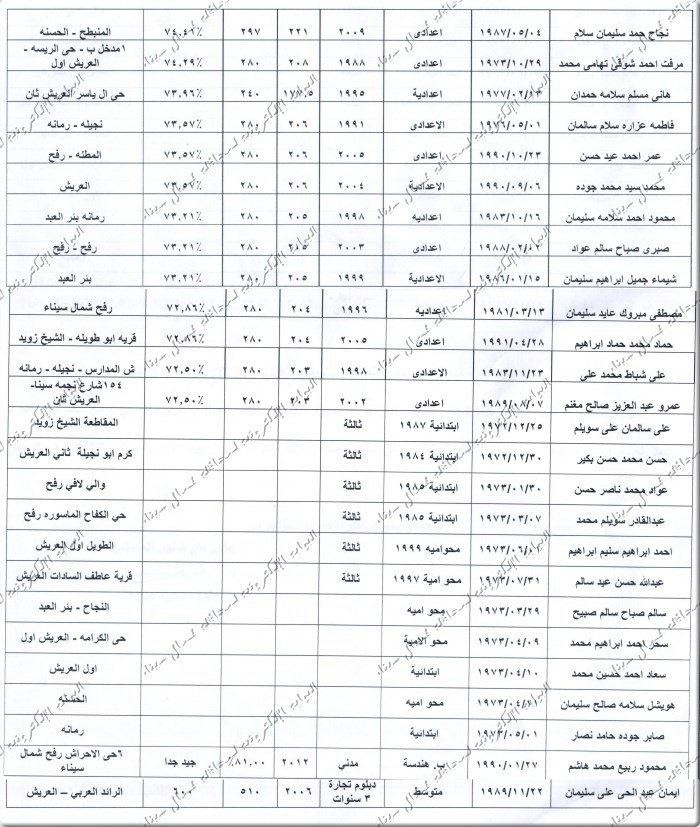 نجاح حمد سليمان سلام ١٩٨٧/٠٥/٠٤ اعدادى ٢٠٠٩ ٢٢١ ٢٩٧ ٧٤.٤١٪ المنبطح - الحسنه
مرفت احمد شوقى تهامى محمد ١٩٧٣/١٠/٢٩ اعدادى ١٩٨٨ ٢٠٨ ٢٨٠ ٧٤.٢٩٪ ١مدخل ب - حى الريسه - العريش اول
هانى مسلم سلامه حمدان ١٩٧٧/٠٢/١٣ اعدادية ١٩٩٥ ١٧٧.٥ ٢٤٠ ٧٣.٩٦٪ حى ال ياسر العريش ثان
فاطمه عزاره سلام سالمان ١٩٧٦/٠٥/٠١ الاعدادى ١٩٩١ ٢٠٦ ٢٨٠ ٧٣.٥٧٪ نجيله - رمانه
عمر احمد عيد حسن ١٩٩٠/١٠/٢٣ اعدادى ٢٠٠٥ ٢٠٦ ٢٨٠ ٧٣.٥٧٪ المطله - رفح
محمد سيد محمد جوده ١٩٩٠/٠٩/٠٦ الاعدادية ٢٠٠٤ ٢٠٦ ٢٨٠ ٧٣.٥٧٪ العريش
محمود احمد سلامه سليمان ١٩٨٣/١٠/١٦ اعداديه ١٩٩٨ ٢٠٥ ٢٨٠ ٧٣.٢١٪ رمانه بئر العبد
صبرى صباح سالم عواد ١٩٨٨/٠٢/٠٢ اعدادى ٢٠٠٣ ٢٠٥ ٢٨٠ ٧٣.٢١٪ رفح - رفح
شيماء جميل ابراهيم سليمان ١٩٨٦/٠١/١٥ الاعدادية ١٩٩٩ ٢٠٥ ٢٨٠ ٧٣.٢١٪ بئر العبد
مصطفى مبروك عايد سليمان ١٩٨١/٠٣/١٣ اعداديه ١٩٩٦ ٢٠٤ ٢٨٠ ٧٢.٨٦٪ رفح شمال سيناء
حماد محمد حماد ابراهيم ١٩٩١/٠٤/٢٨ اعدادى ٢٠٠٥ ٢٠٤ ٢٨٠ ٧٢.٨٦٪ قريه ابو طويله - الشيخ زويد
على شباط محمد على ١٩٨٣/١١/٢٣ الاعدادى ١٩٩٨ ٢٠٣ ٢٨٠ ٧٢.٥٠٪ ش المدارس - نجيله - رمانه
عمرو عبد العزيز صالح مغنم ١٩٨٩/٠٧/٠٧ اعدادى ٢٠٠٢ ٢٠٣ ٢٨٠ ٧٢.٥٠٪ ١٥٤شارع نجمه سينا- العريش ثان
على سالمان على سويلم ١٩٧٢/١٢/٢٥ ابتدائية ١٩٨٧ ثالثة المقاطعة الشيخ زويد
حسن محمد حسن بكير ١٩٧٢/١٢/٣٠ ابتدائية ١٩٨٤ ثالثة كرم ابو نجيلة ثاني العريش
عواد محمد ناصر حسن ١٩٧٣/٠١/٣٠ ابتدائية ١٩٨٥ ثالثة والي لافي رفح
عبدالقادر سويلم محمد ١٩٧٣/٠٣/٠٧ ابتدائية ١٩٨٥ ثالثة حي الكفاح الماسوره رفح
احمد ابراهيم سليم ابراهيم ١٩٧٣/٠٦/٠١ محواميه ١٩٩٩ ثالثة الطويل اول العريش
عبدالله حسن عيد سالم ١٩٧٣/٠٧/٣١ محو امية ١٩٩٧ ثالثة قرية عاطف السادات العريش
سالم صباح سالم صبيح ١٩٧٣/٠٣/٢٩ محو اميه النجاح - بئر العبد
سحر احمد ابراهيم محمد ١٩٧٣/٠٤/٠٩ محو الامية حى الكرامه - العريش اول
سعاد احمد حسين محمد ١٩٧٣/٠٤/١٠ ابتدائية اول العريش
هويشل سلامه صالح سليمان ١٩٧٣/٠٤/١١ محو اميه الحسنه
صابر جوده حامد نصار ١٩٧٣/٠٥/٠١ ابتدائية رمانه
محمود ربيع محمد هاشم ١٩٩٠/٠١/٢٧ ب. هندسة مدني ٢٠١٢ ٨١.٠٠ جيد جدا ٦حى الاحراش رفح شمال سيناء
ايمان عبد الحى على سليمان ١٩٨٩/١١/٢٢ متوسط دبلوم تجارة ٣ سنوات ٢٠٠٦ ٥١٠ ٦٠٠ الرائد العربي – العريش